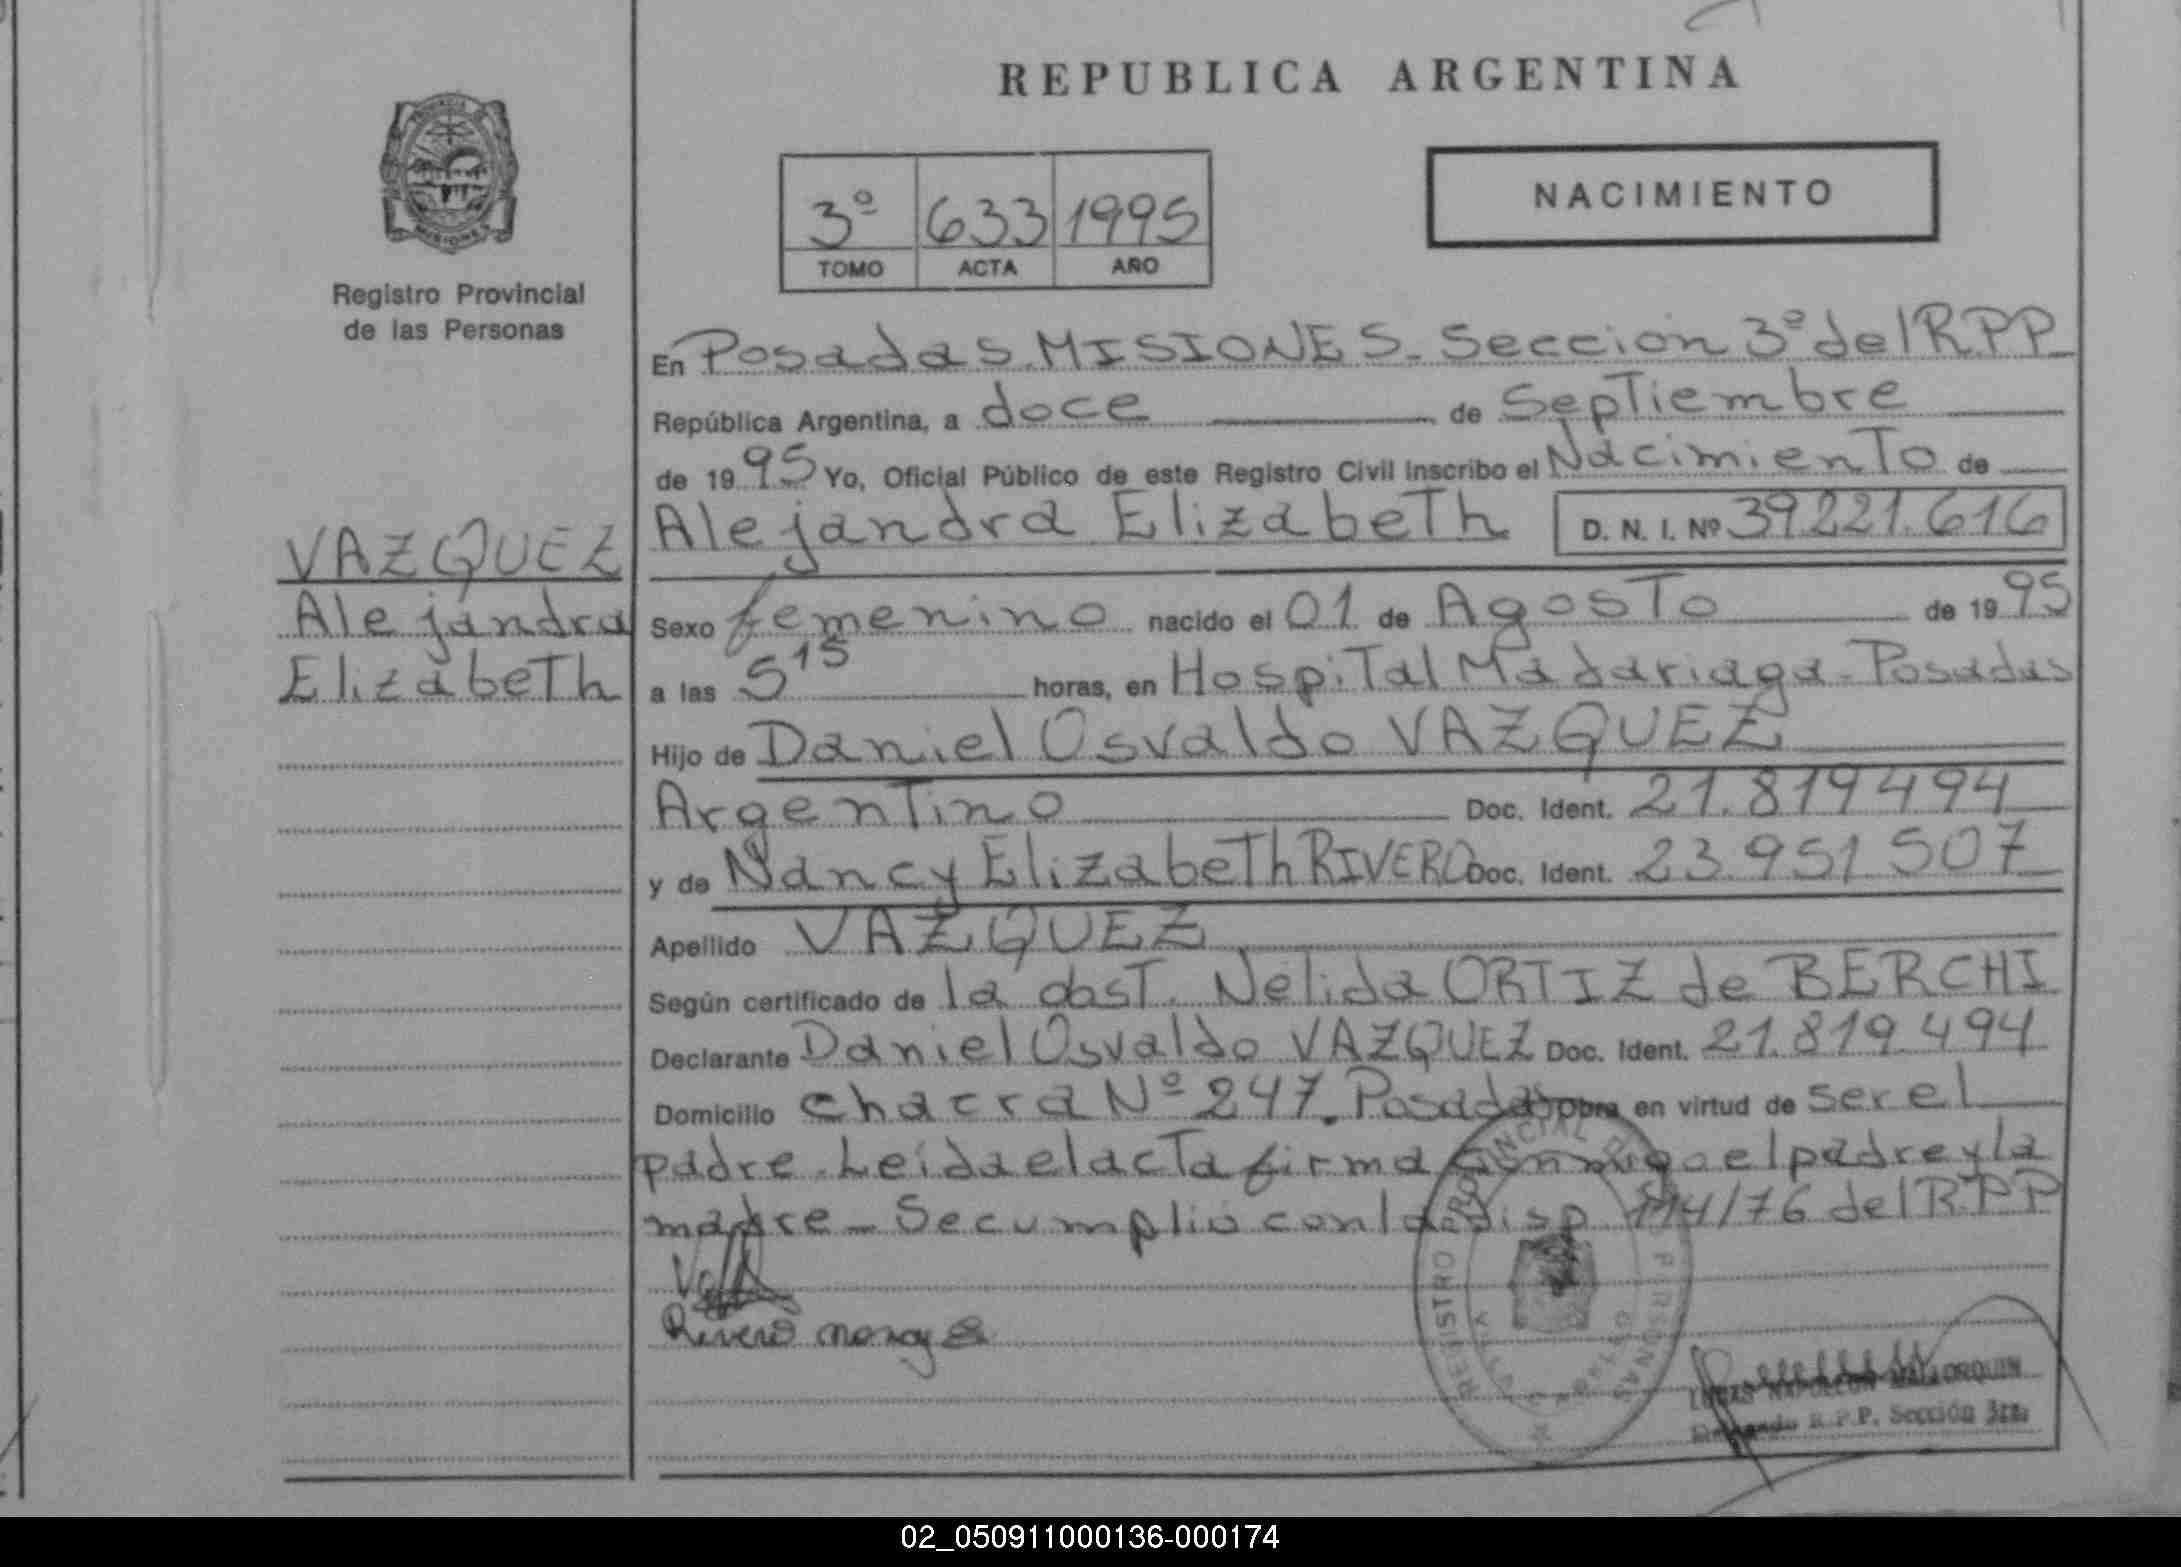 REPUBLICA ARGENTINA
NACIMIENTO
3º 633 1995
TOMO ACTA AÑO
MISIONES
Registro Provincial
de las Personas
VAZQUEZ
Alejandra
Elizabeth
En Posadas. MISIONES. Seccion 3º del R.P.P.
República Argentina, a doce de Septiembre
de 1995 Yo, Oficial Público de este Registro Civil inscribo el Nacimiento de
Alejandra Elizabeth D. N. I. Nº 39.221.616
Sexo femenino nacido el 01 de Agosto de 1995
a las 5 15 horas, en Hospital Madariaga - Posadas
Hijo de Daniel Osvaldo VAZQUEZ
Argentino Doc. Ident. 21.819.494
y de Nancy Elizabeth RIVERO Doc. Ident. 23.951.507
Apellido VAZQUEZ
Según certificado de la obst. Nélida ORTIZ de BERCHI
Declarante Daniel Osvaldo VAZQUEZ Doc. Ident. 21.819.494
Domicilio chacra Nº 247. Posadas Obra en virtud de ser el
padre. Leída el acta firma conmigo el padre y la
madre - Se cumplió con la disp. 114/76 del R.P.P
Rivero nancy E
REGISTRO PROVINCIAL DE LAS PERSONAS
LUCAS NAPOLEON MALLORQUIN
R.P.P. Sección 3ra.
02_050911000136-000174